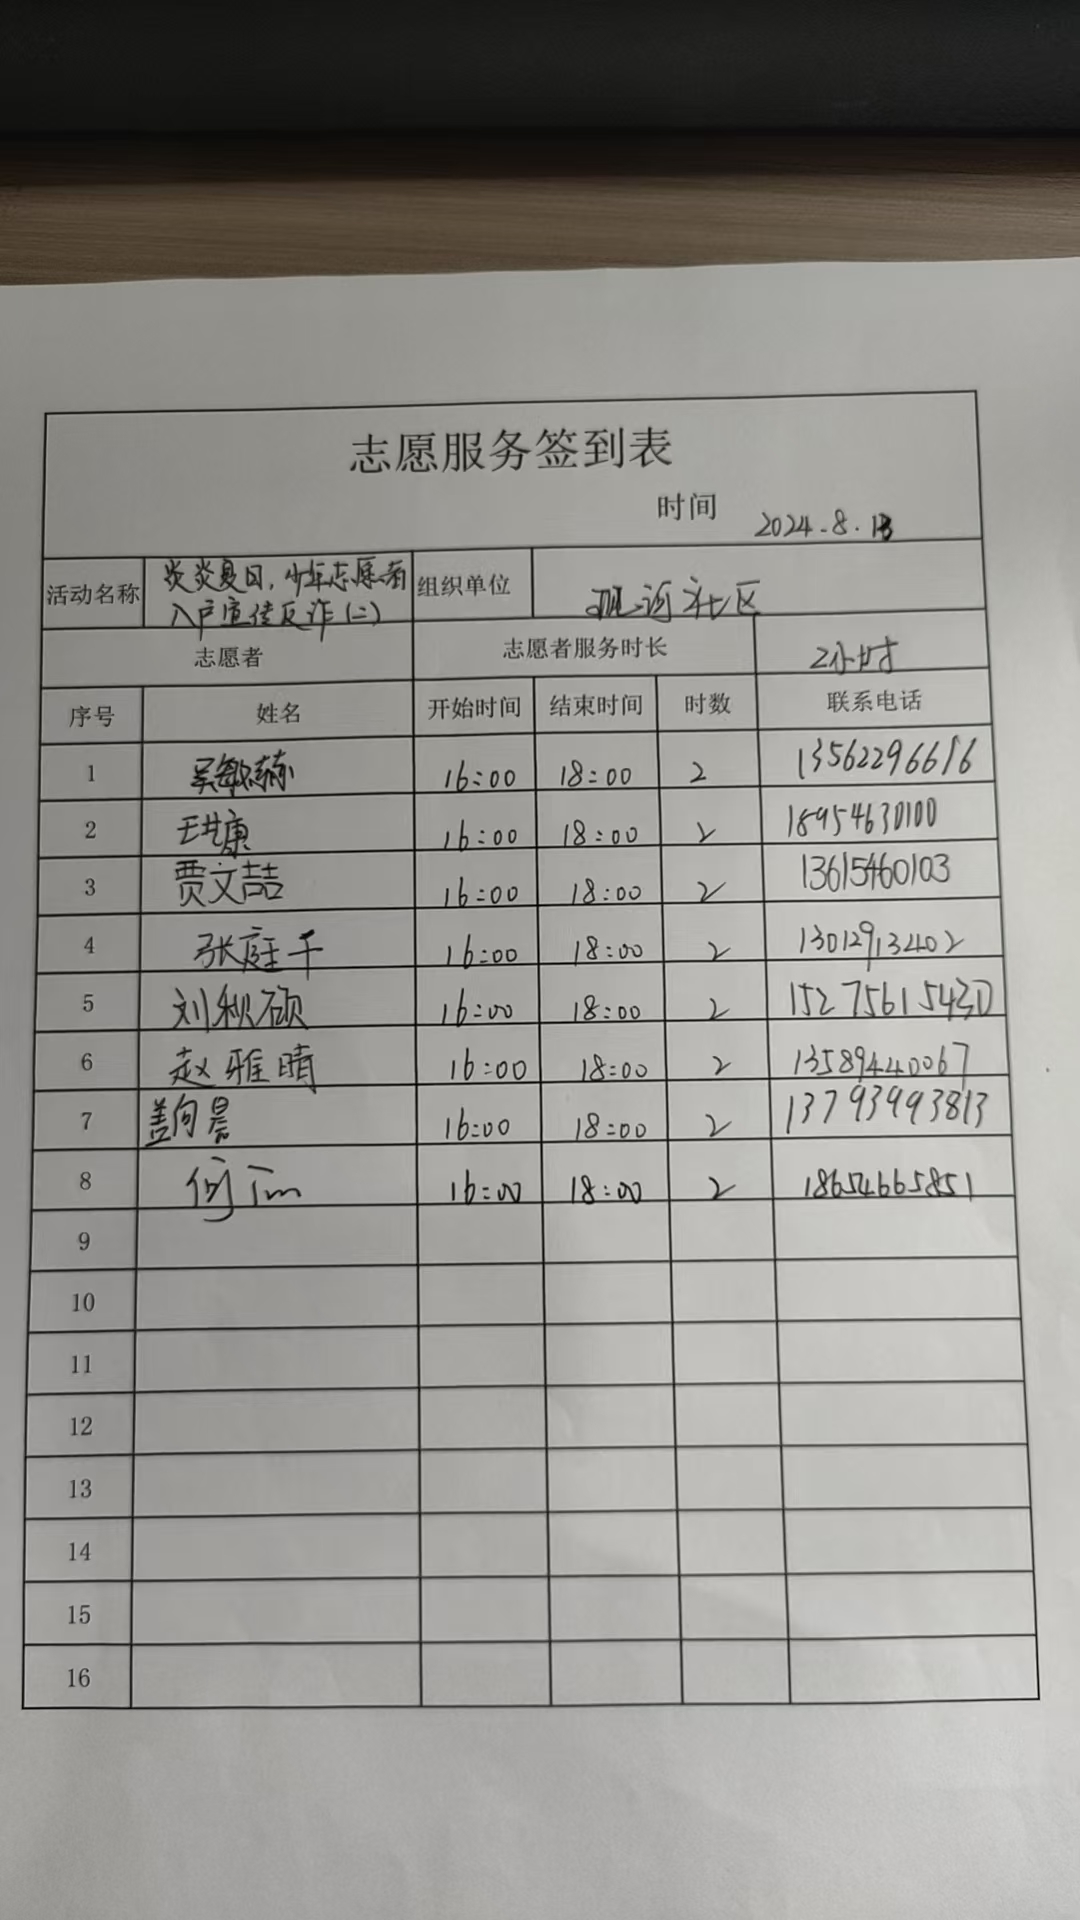 志愿服务签到表
时间 2024.8.13
活动名称 炎炎夏日,少年志愿者 组织单位 社区
入户宣传反诈(二)
志愿者 志愿者服务时长 2小时
序号 姓名 开始时间 结束时间 时数 联系电话
1 吴敏赫 16:00 18:00 2 13562296616
2 王洪康 16:00 18:00 2 18954630100
3 贾文喆 16:00 18:00 2 13615460103
4 张庭千 16:00 18:00 2 13012913402
5 刘秋硕 16:00 18:00 2 15275615430
6 赵雅晴 16:00 18:00 2 13589440067
7 盖向晨 16:00 18:00 2 13793993813
8 何 16:00 18:00 2 18654665851
9
10
11
12
13
14
15
16